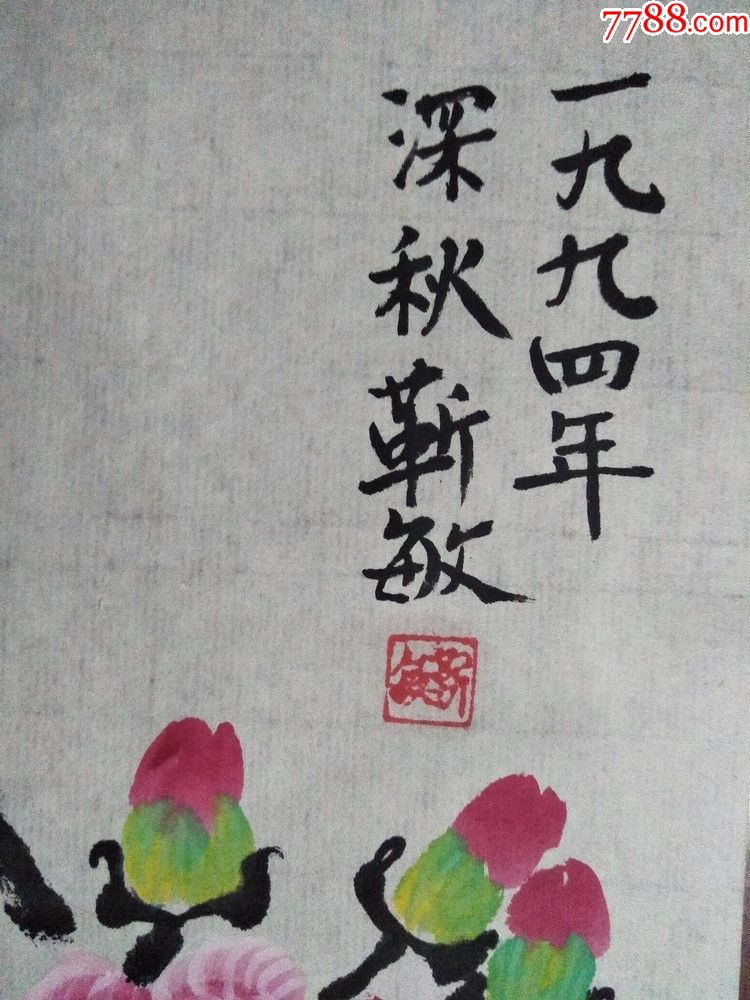 7788.com
一九九四年
深秋靳敏